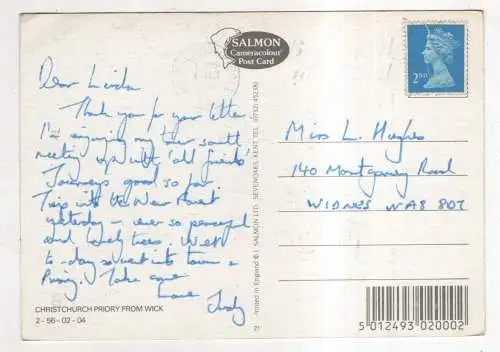 SALMON
Cameracolour
Post Card
2ND
Dear Linda
Thank you for your letter.
I'm enjoying my tour south
meeting up with 'old friends'
Journeys good so far
Trip into the New Forest
yesterday - ever so peaceful
and lovely trees. Wet
to-day so went into town &
Priory. Take care
Love Judy
Miss L. Hughes
140 Montgomery Road
WIDNES WA8 8DZ
CHRISTCHURCH PRIORY FROM WICK
2-56-02-04
Printed in England © J. SALMON LTD. SEVENOAKS, KENT. TEL. (0732) 452381
5 012493 020002